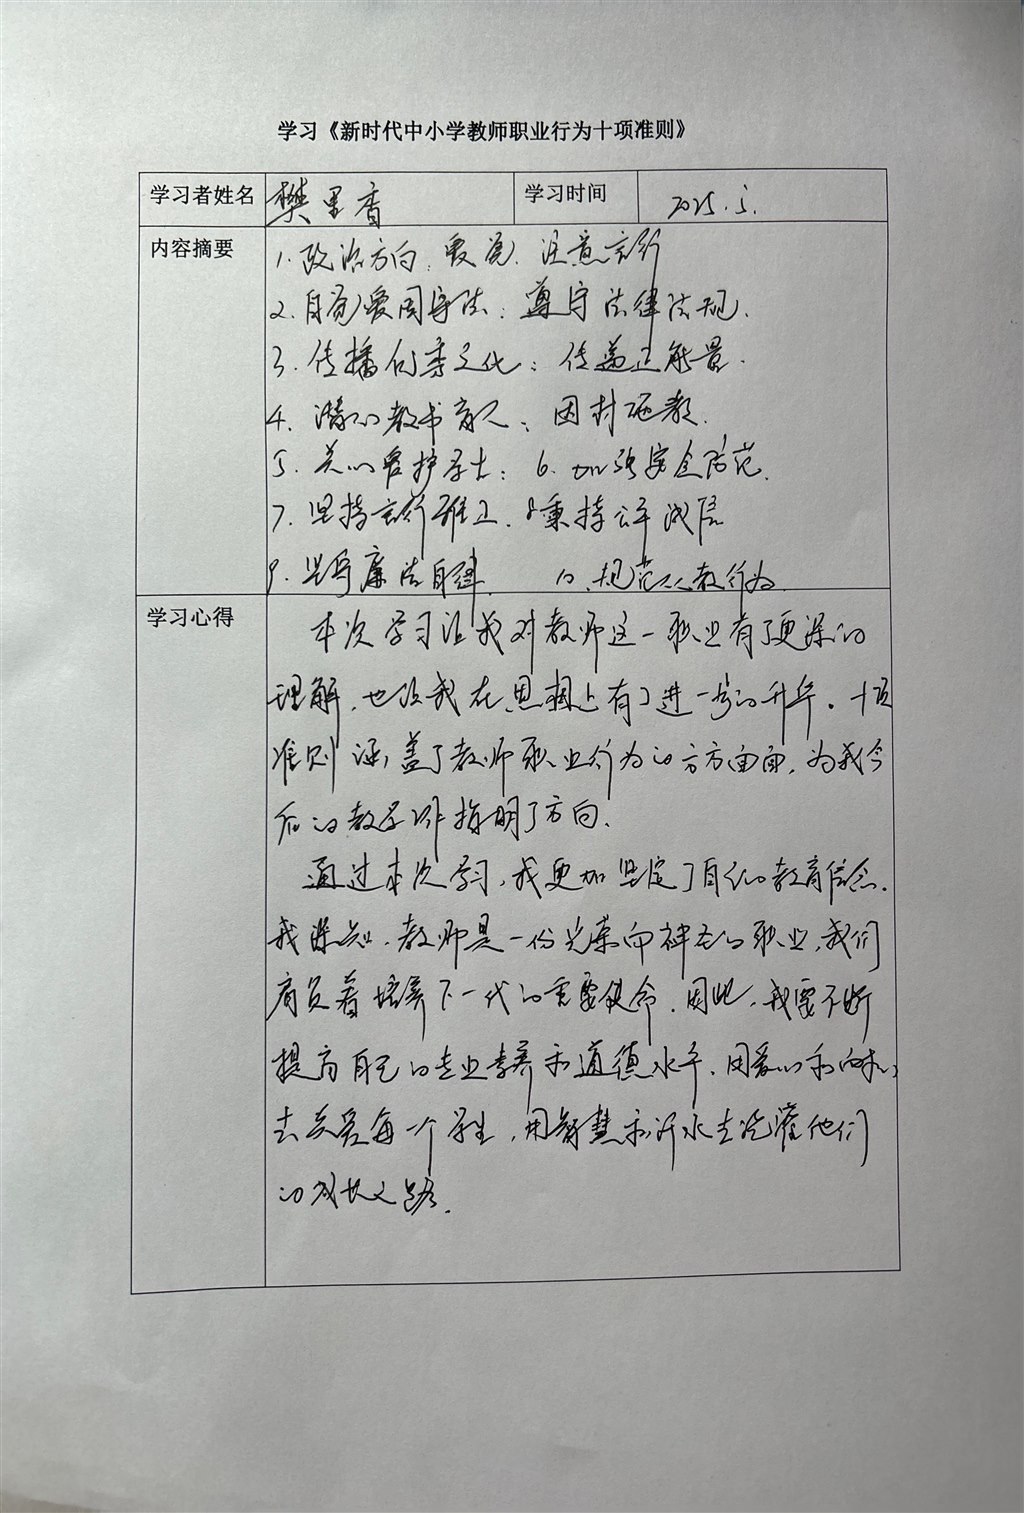 学习《新时代中小学教师职业行为十项准则》
学习者姓名 樊里香 学习时间 2025.5.
内容摘要 1.政治方向:爱党.注意言行
2.自觉爱国守法:遵守法律法规.
3.传播优秀文化:传递正能量.
4.潜心教书育人:因材施教.
5.关心爱护学生:6.加强安全防范.
7.坚持言行雅正.8秉持公平诚信
9.坚守廉洁自律. 10.规范从教行为
学习心得 本次学习让我对教师这一职业有了更深的
理解,也让我在思想上有了进一步的升华。十项
准则涵盖了教师职业行为的方方面面,为我今
后的教学工作指明了方向.
通过本次学习,我更加坚定了自己的教育信念.
我深知,教师是一份光荣而神圣的职业,我们
肩负着培养下一代的重要使命.因此,我要不断
提高自己的专业素养和道德水平.用爱心和耐心
去关爱每一个学生,用智慧和汗水去浇灌他们
的成长之路.